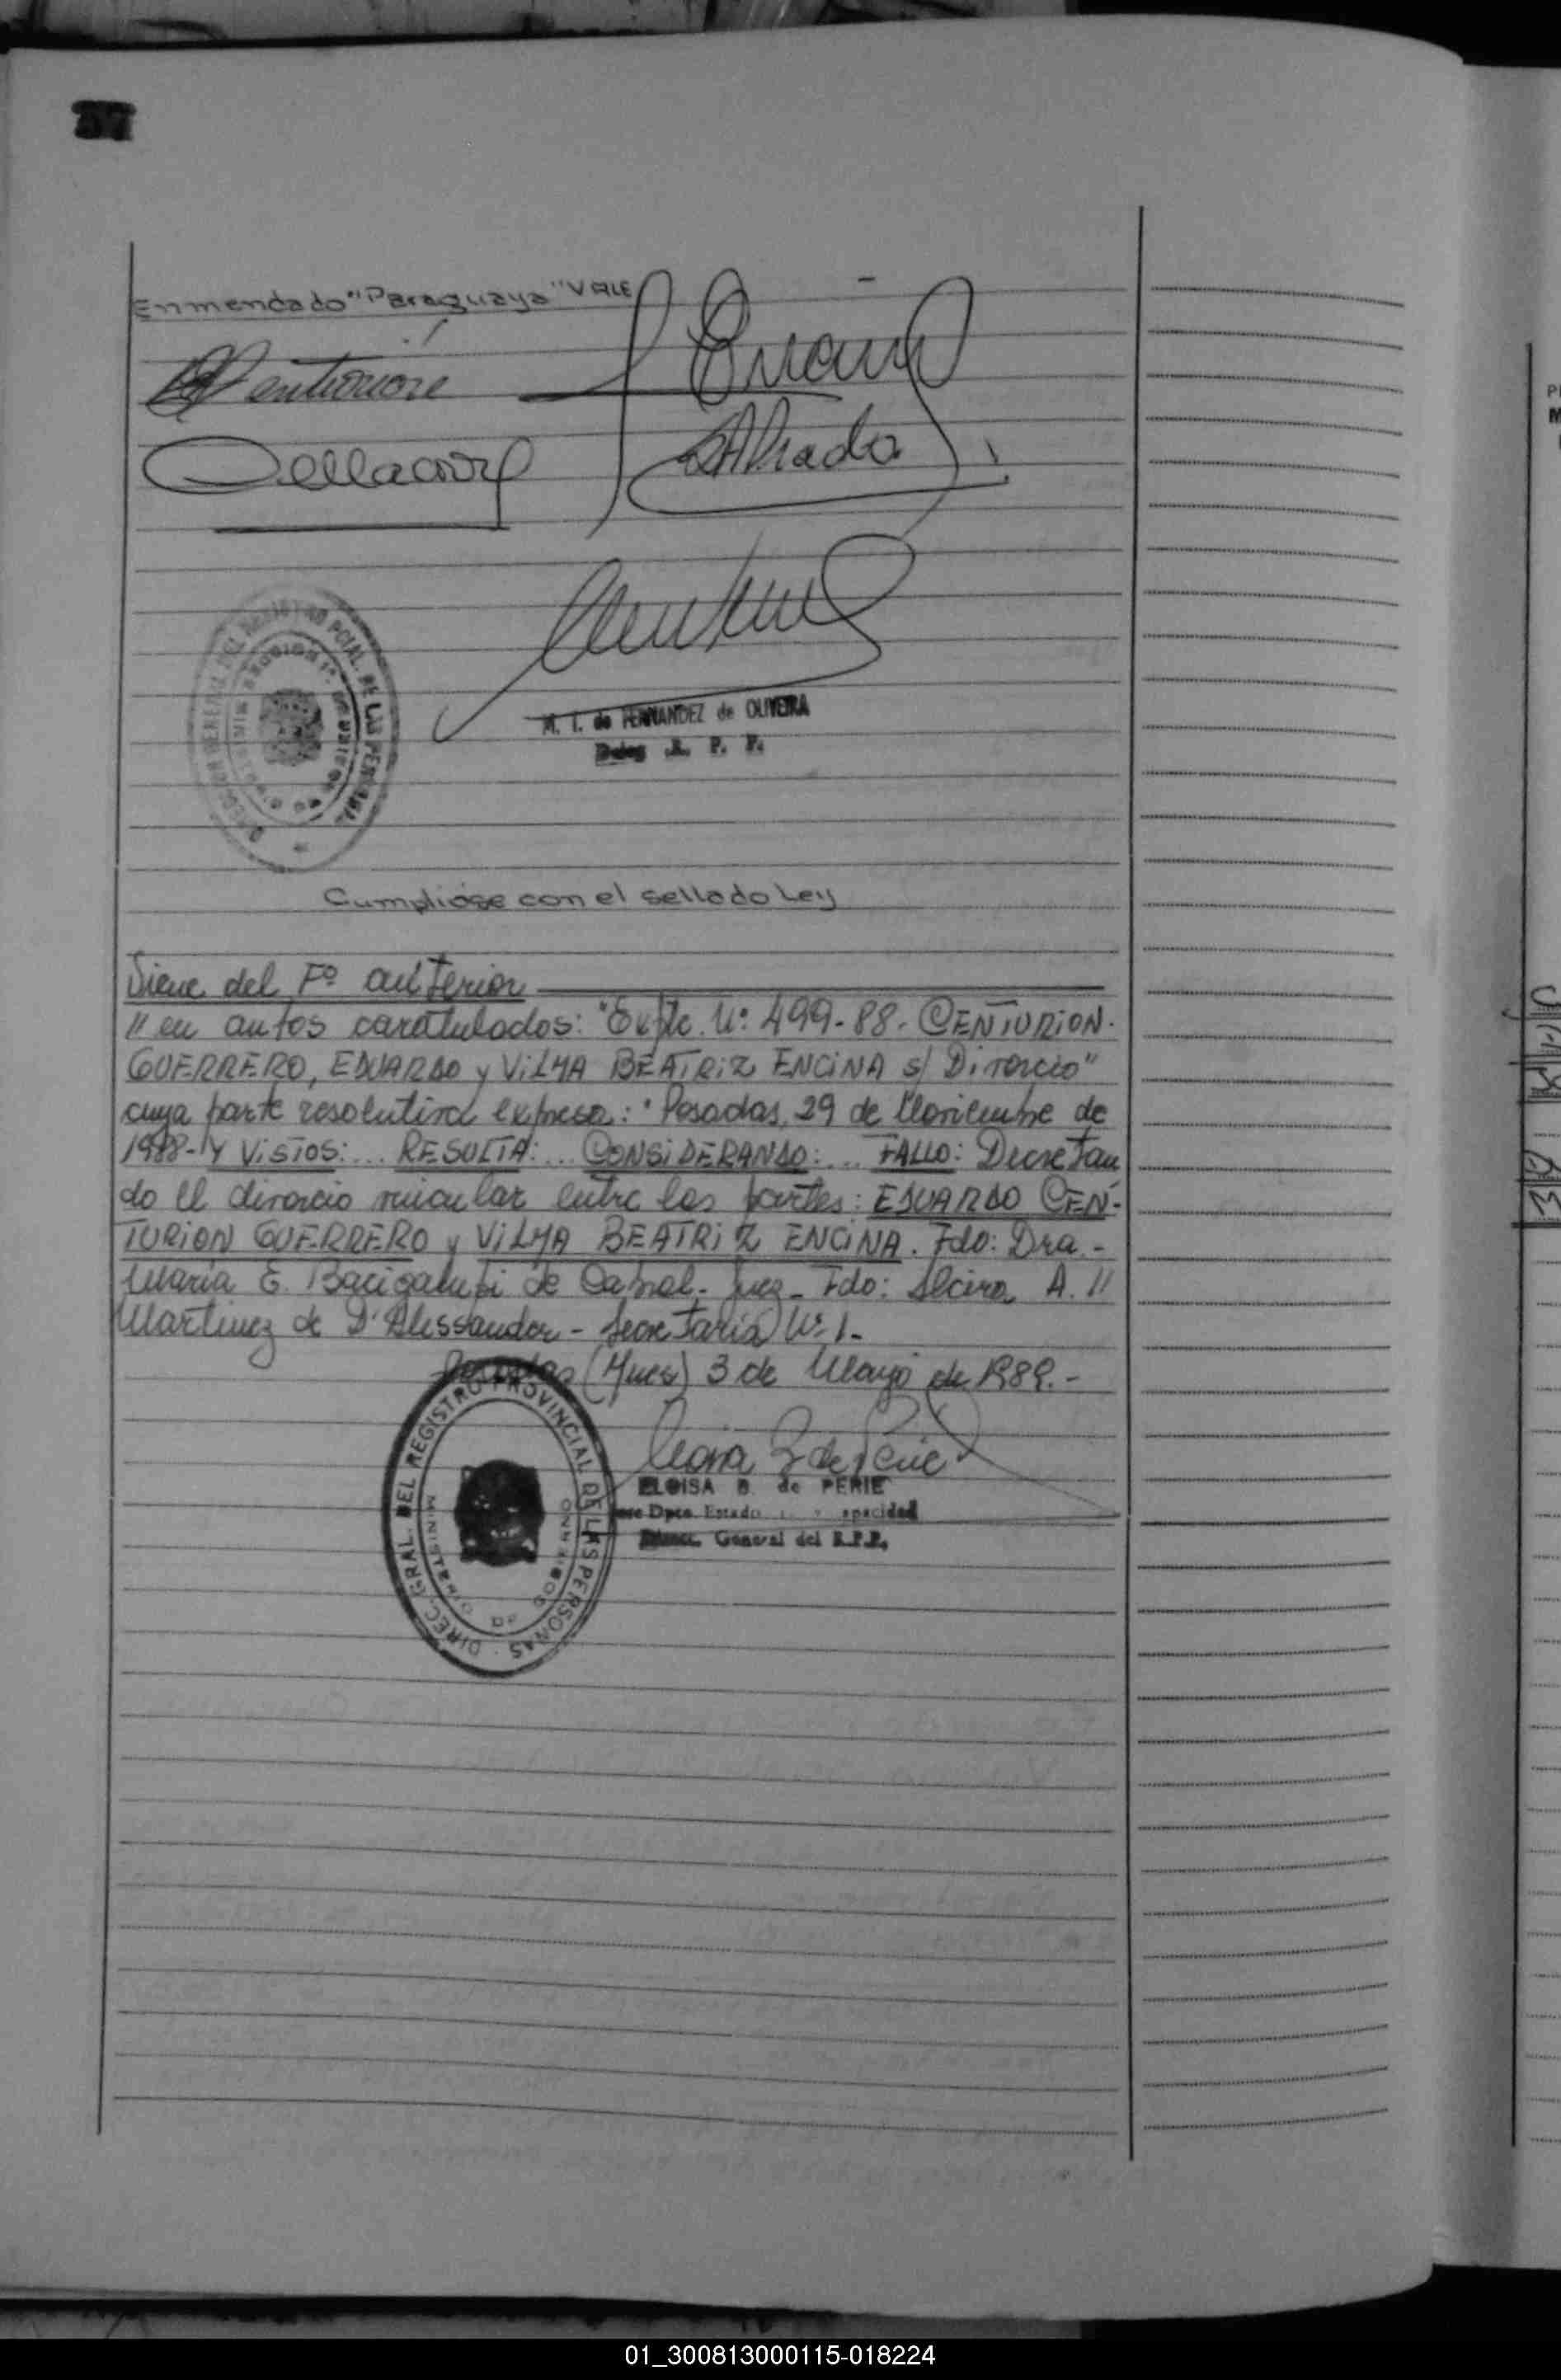 Enmendado "Paraguaya" VALE
M. I. de FERNANDEZ de OLIVEIRA
Deleg. R. P. P.
Cumplióse con el sellado Ley
Viene del Fº anterior
"en autos caratulados: "Expte. Nº 499-88. CENTURION.
GUERRERO, EDUARDO y VILMA BEATRIZ ENCINA s/ Divorcio"
cuya parte resolutiva expresa: "Posadas, 29 de Noviembre de
1988- Y VISTOS:... RESULTA:... CONSIDERANDO:... FALLO: Decretan
do el divorcio vincular entre las partes: EDUARDO CEN-
TURION GUERRERO y VILMA BEATRIZ ENCINA. Fdo: Dra.-
Maria E. Bacigalupi de Cabral. Juez - Fdo: Alcira A. //
Martinez de D'Alessandor - Secretaria Nº 1.-
Posadas (Mnes) 3 de Mayo de 1989.-
DIREC. GRAL. DEL REGISTRO PROVINCIAL DE LAS PERSONAS
MINISTERIO DE GOBIERNO
ELOISA B. de PERIE
Dpto. Estado
General del R.P.P.
01_300813000115-018224